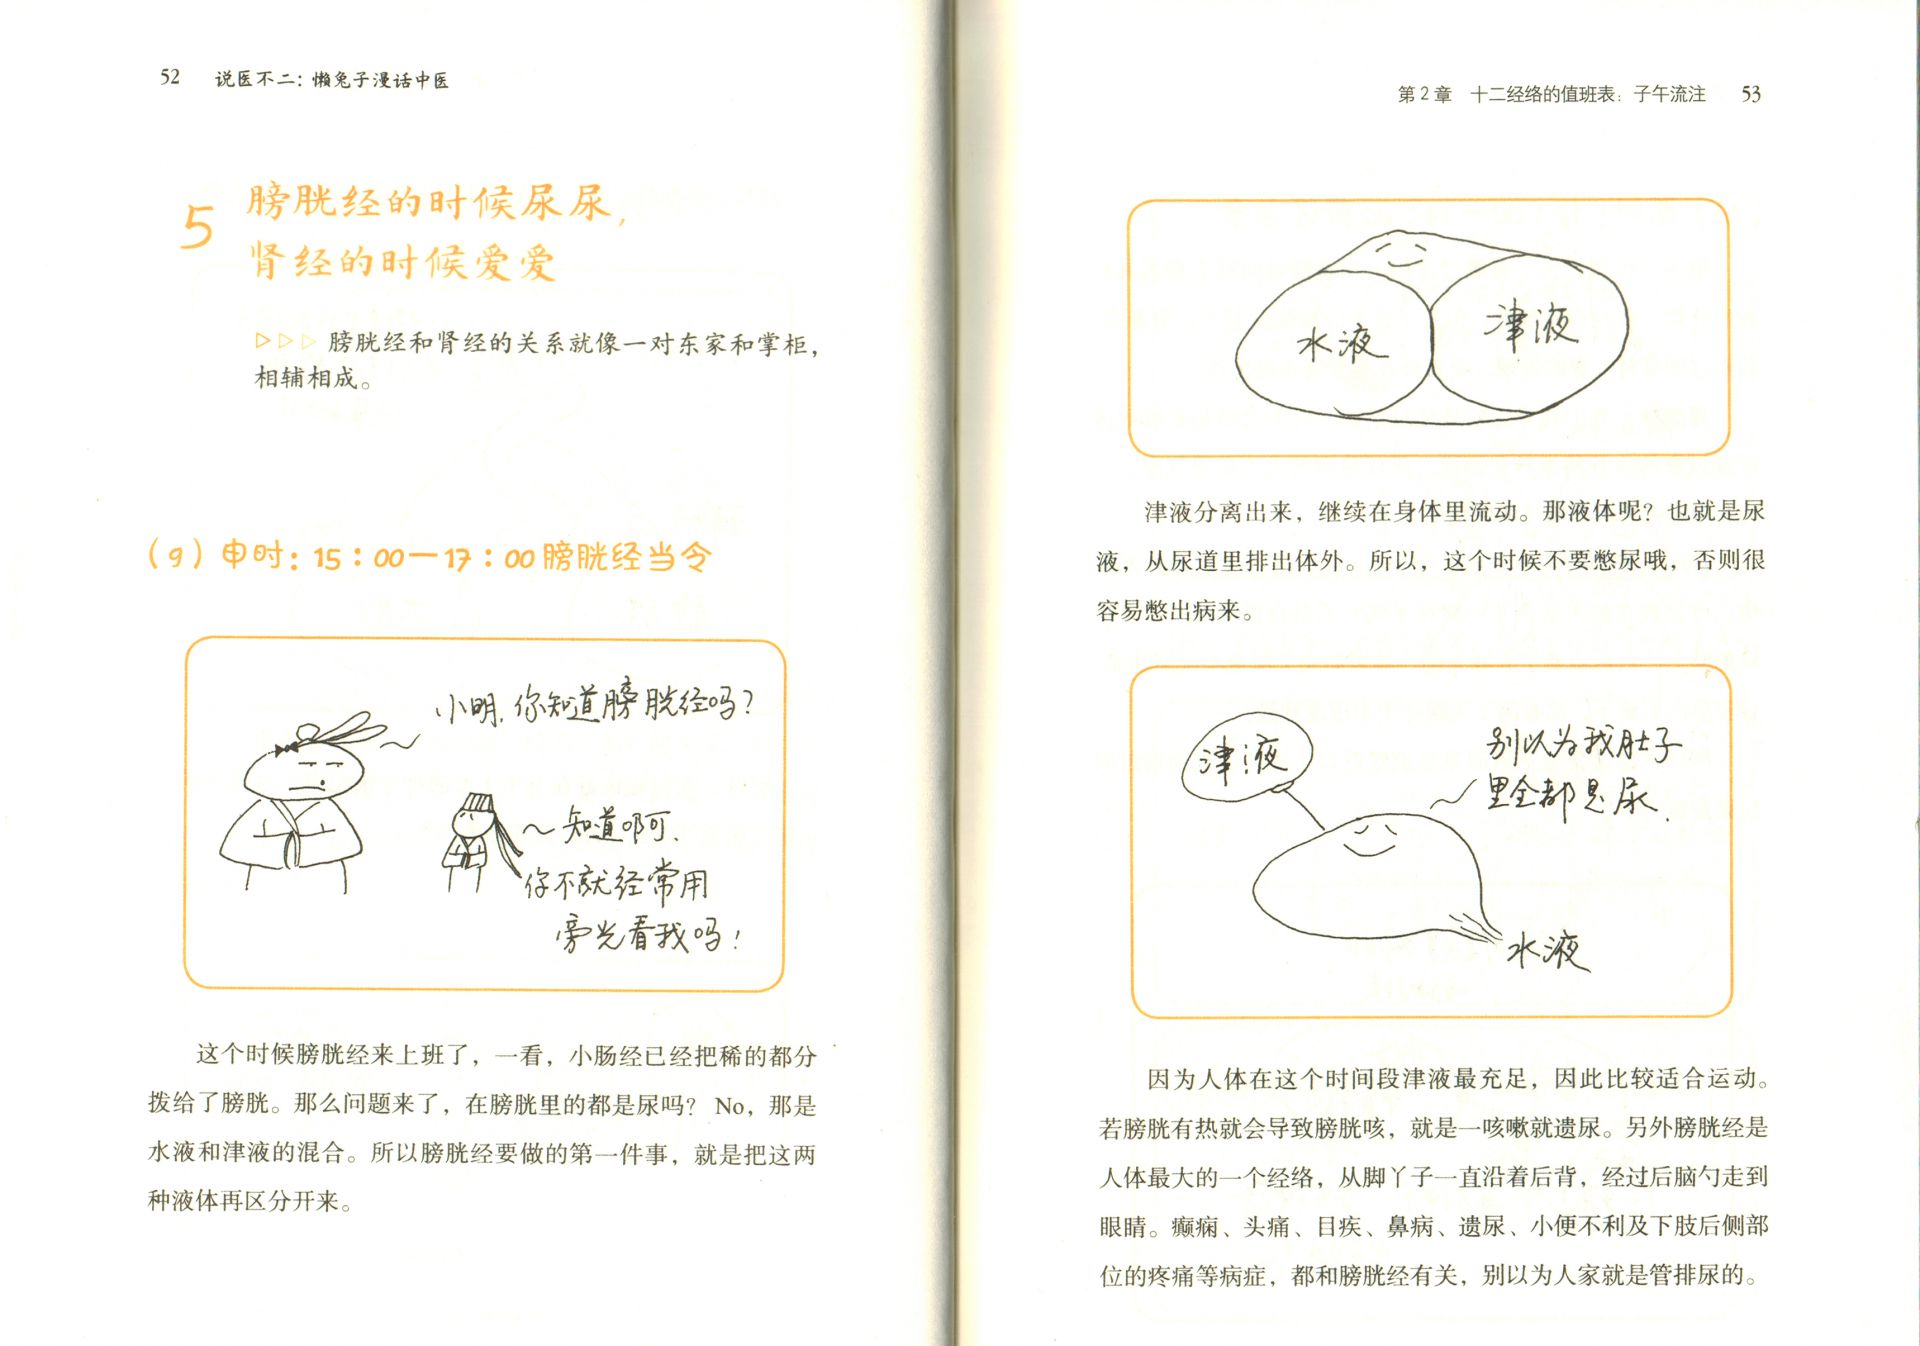 52 说医不二：懒兔子漫话中医
5 膀胱经的时候尿尿，
肾经的时候爱爱
▷▷▷ 膀胱经和肾经的关系就像一对东家和掌柜，
相辅相成。
（9）申时：15：00—17：00膀胱经当令
小明，你知道膀胱经吗？
~知道啊可.
你不就经常用
旁光看我吗！
这个时候膀胱经来上班了，一看，小肠经已经把稀的都分
拨给了膀胱。那么问题来了，在膀胱里的都是尿吗？ No，那是
水液和津液的混合。所以膀胱经要做的第一件事，就是把这两
种液体再区分开来。
第 2 章 十二经络的值班表：子午流注 53
水液
津液
津液分离出来，继续在身体里流动。那液体呢？也就是尿
液，从尿道里排出体外。所以，这个时候不要憋尿哦，否则很
容易憋出病来。
津液
别以为我肚子
里全都是尿.
水液
因为人体在这个时间段津液最充足，因此比较适合运动。
若膀胱有热就会导致膀胱咳，就是一咳嗽就遗尿。另外膀胱经是
人体最大的一个经络，从脚丫子一直沿着后背，经过后脑勺走到
眼睛。癫痫、头痛、目疾、鼻病、遗尿、小便不利及下肢后侧部
位的疼痛等病症，都和膀胱经有关，别以为人家就是管排尿的。